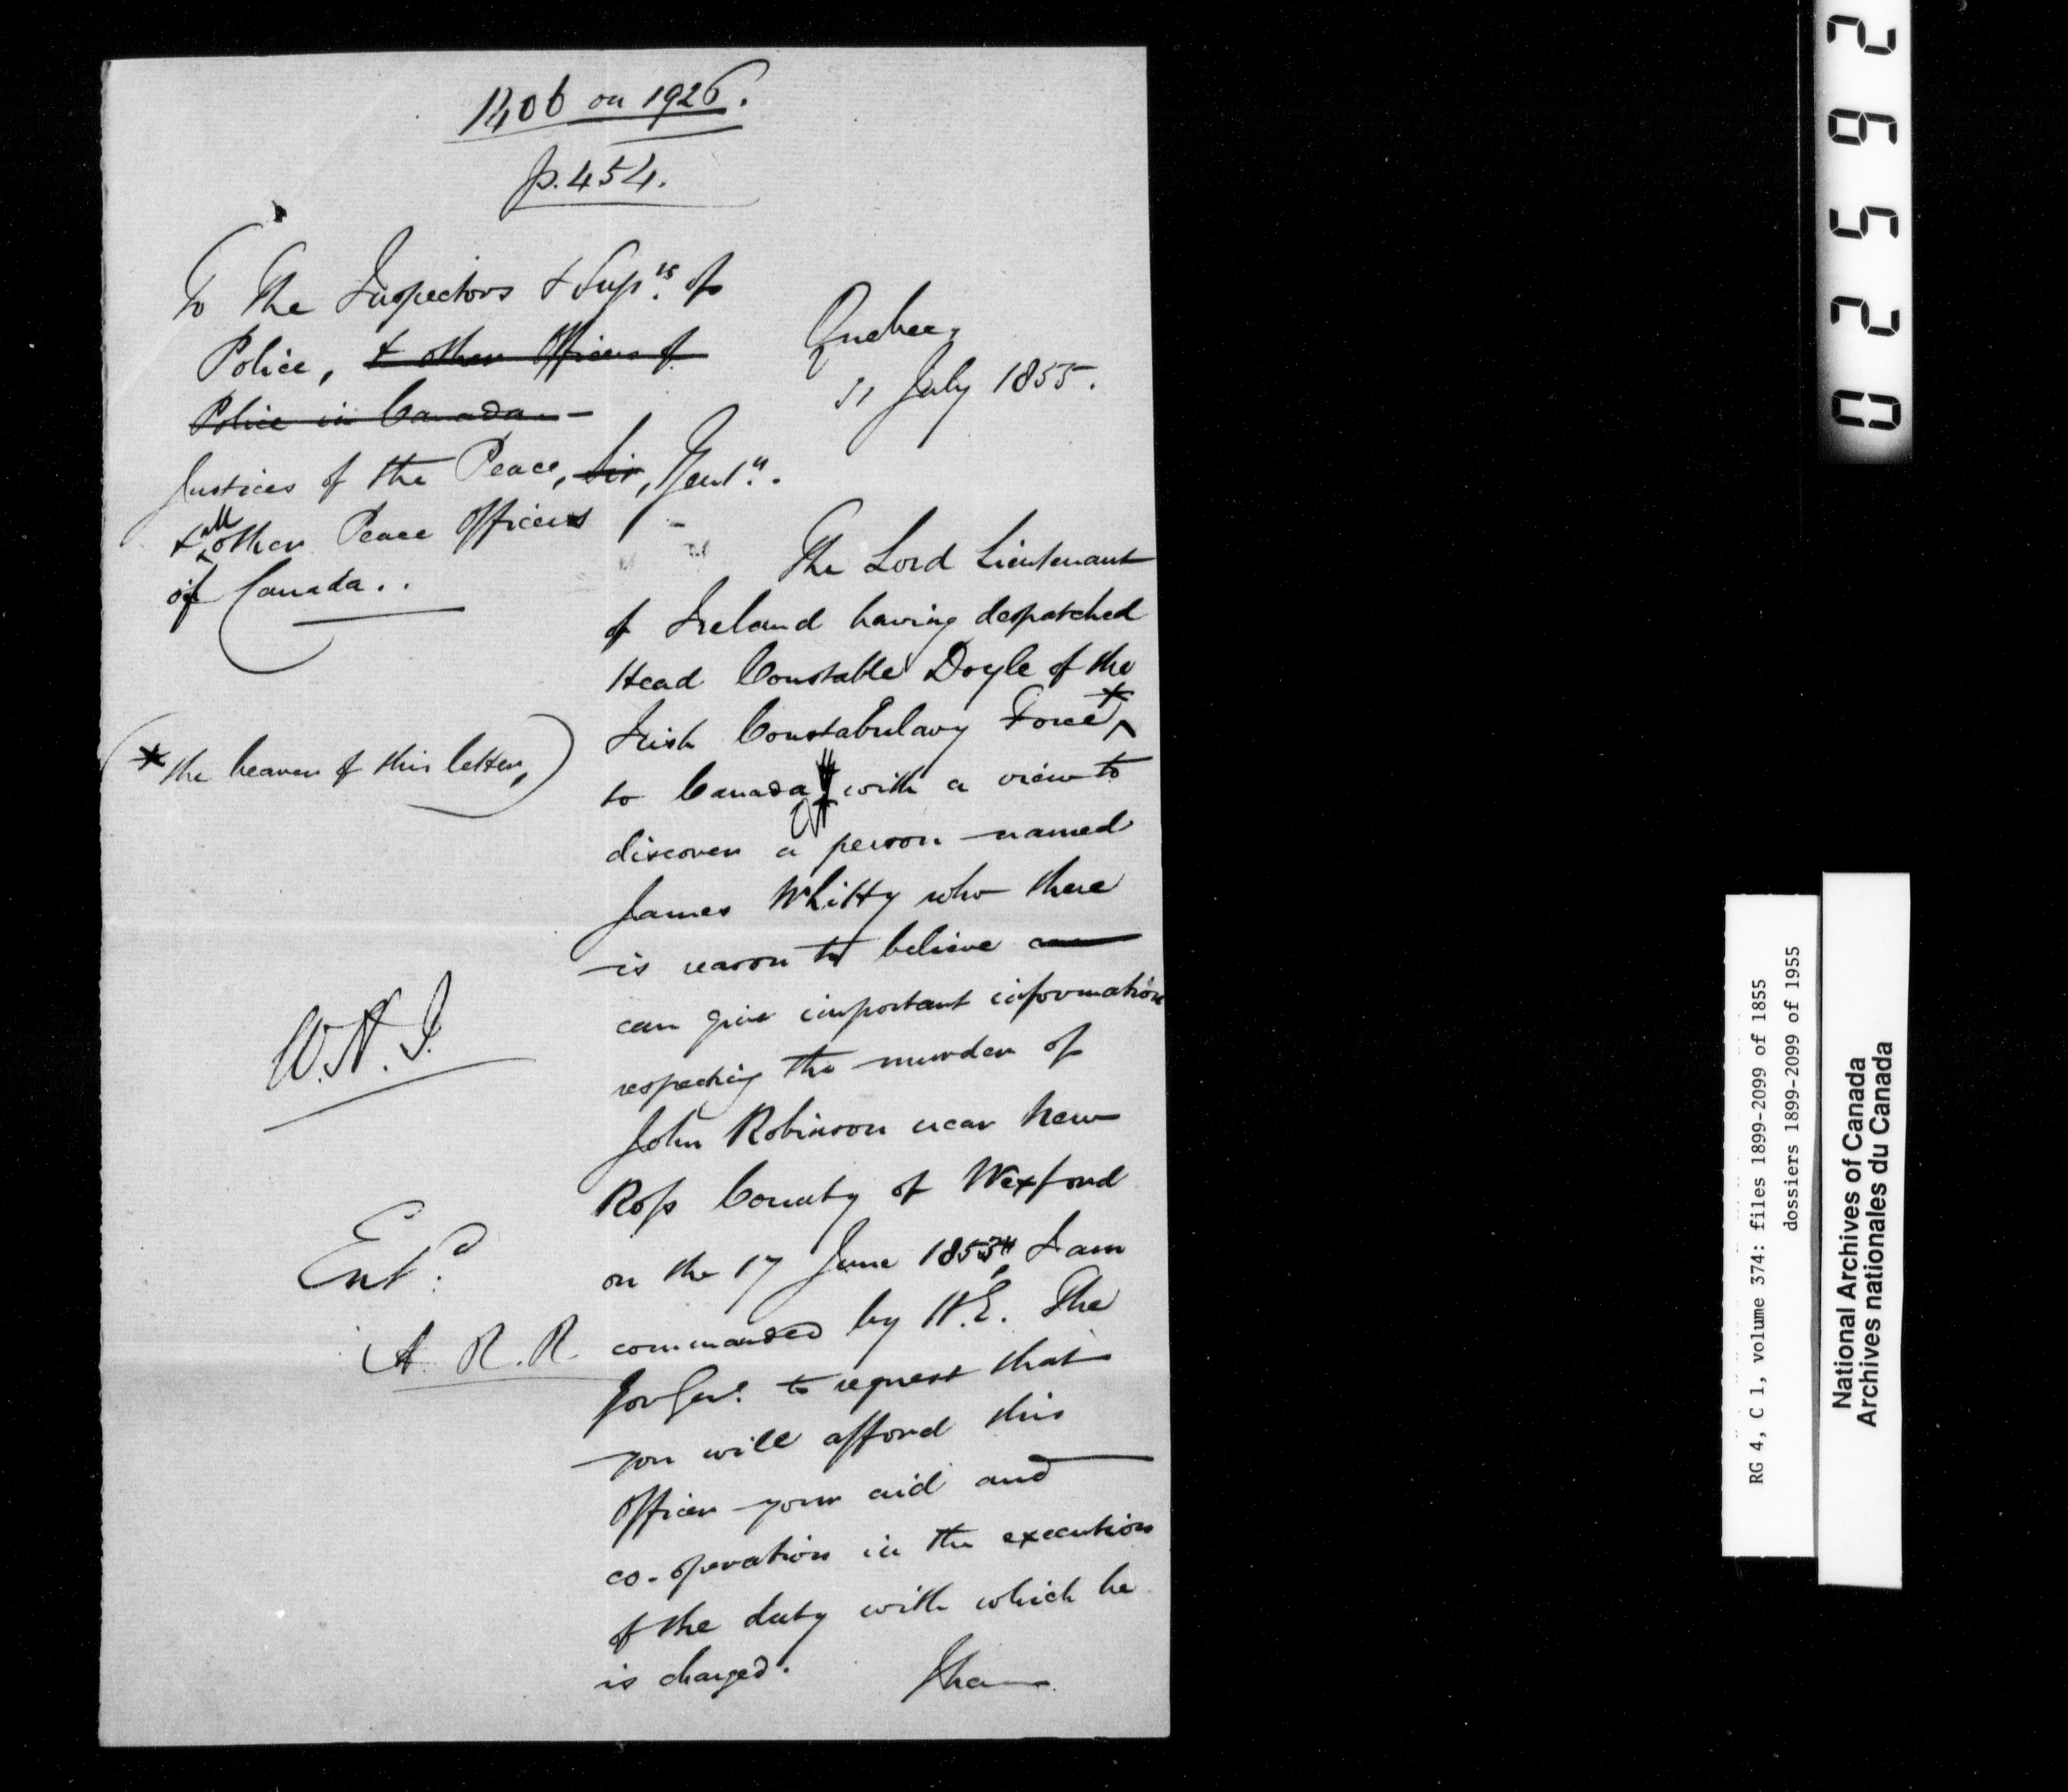 1406 on 1926.
p. 454.
To The Inspectors & Supts. of
Police, & other Officers of
Police in Canada. -
Justices of the Peace,
& all other Peace Officers
of Canada..
Quebec,
31 July 1855.
Sir, Gentn.
The Lord Lieutenant
of Ireland having despatched
Head Constable Doyle of the
Irish Constabulary Force *
(* the bearer of this letter,)
to Canada with a view to
discover a person named
James Whitty who there
is reason to believe
can give important information
respecting the murder of
John Robinson near New
Ross County of Wexford
on the 17 June 1853, I am
commanded by H.E. The
Gov Genl. to request that
you will afford this
Officer your aid and
co-operation in the execution
of the duty with which he
is charged.
I have
W.H.J.
Entd.
A. R. R.
02592
RG 4, C 1, volume 374: files 1899-2099 of 1855
dossiers 1899-2099 of 1955
National Archives of Canada
Archives nationales du Canada